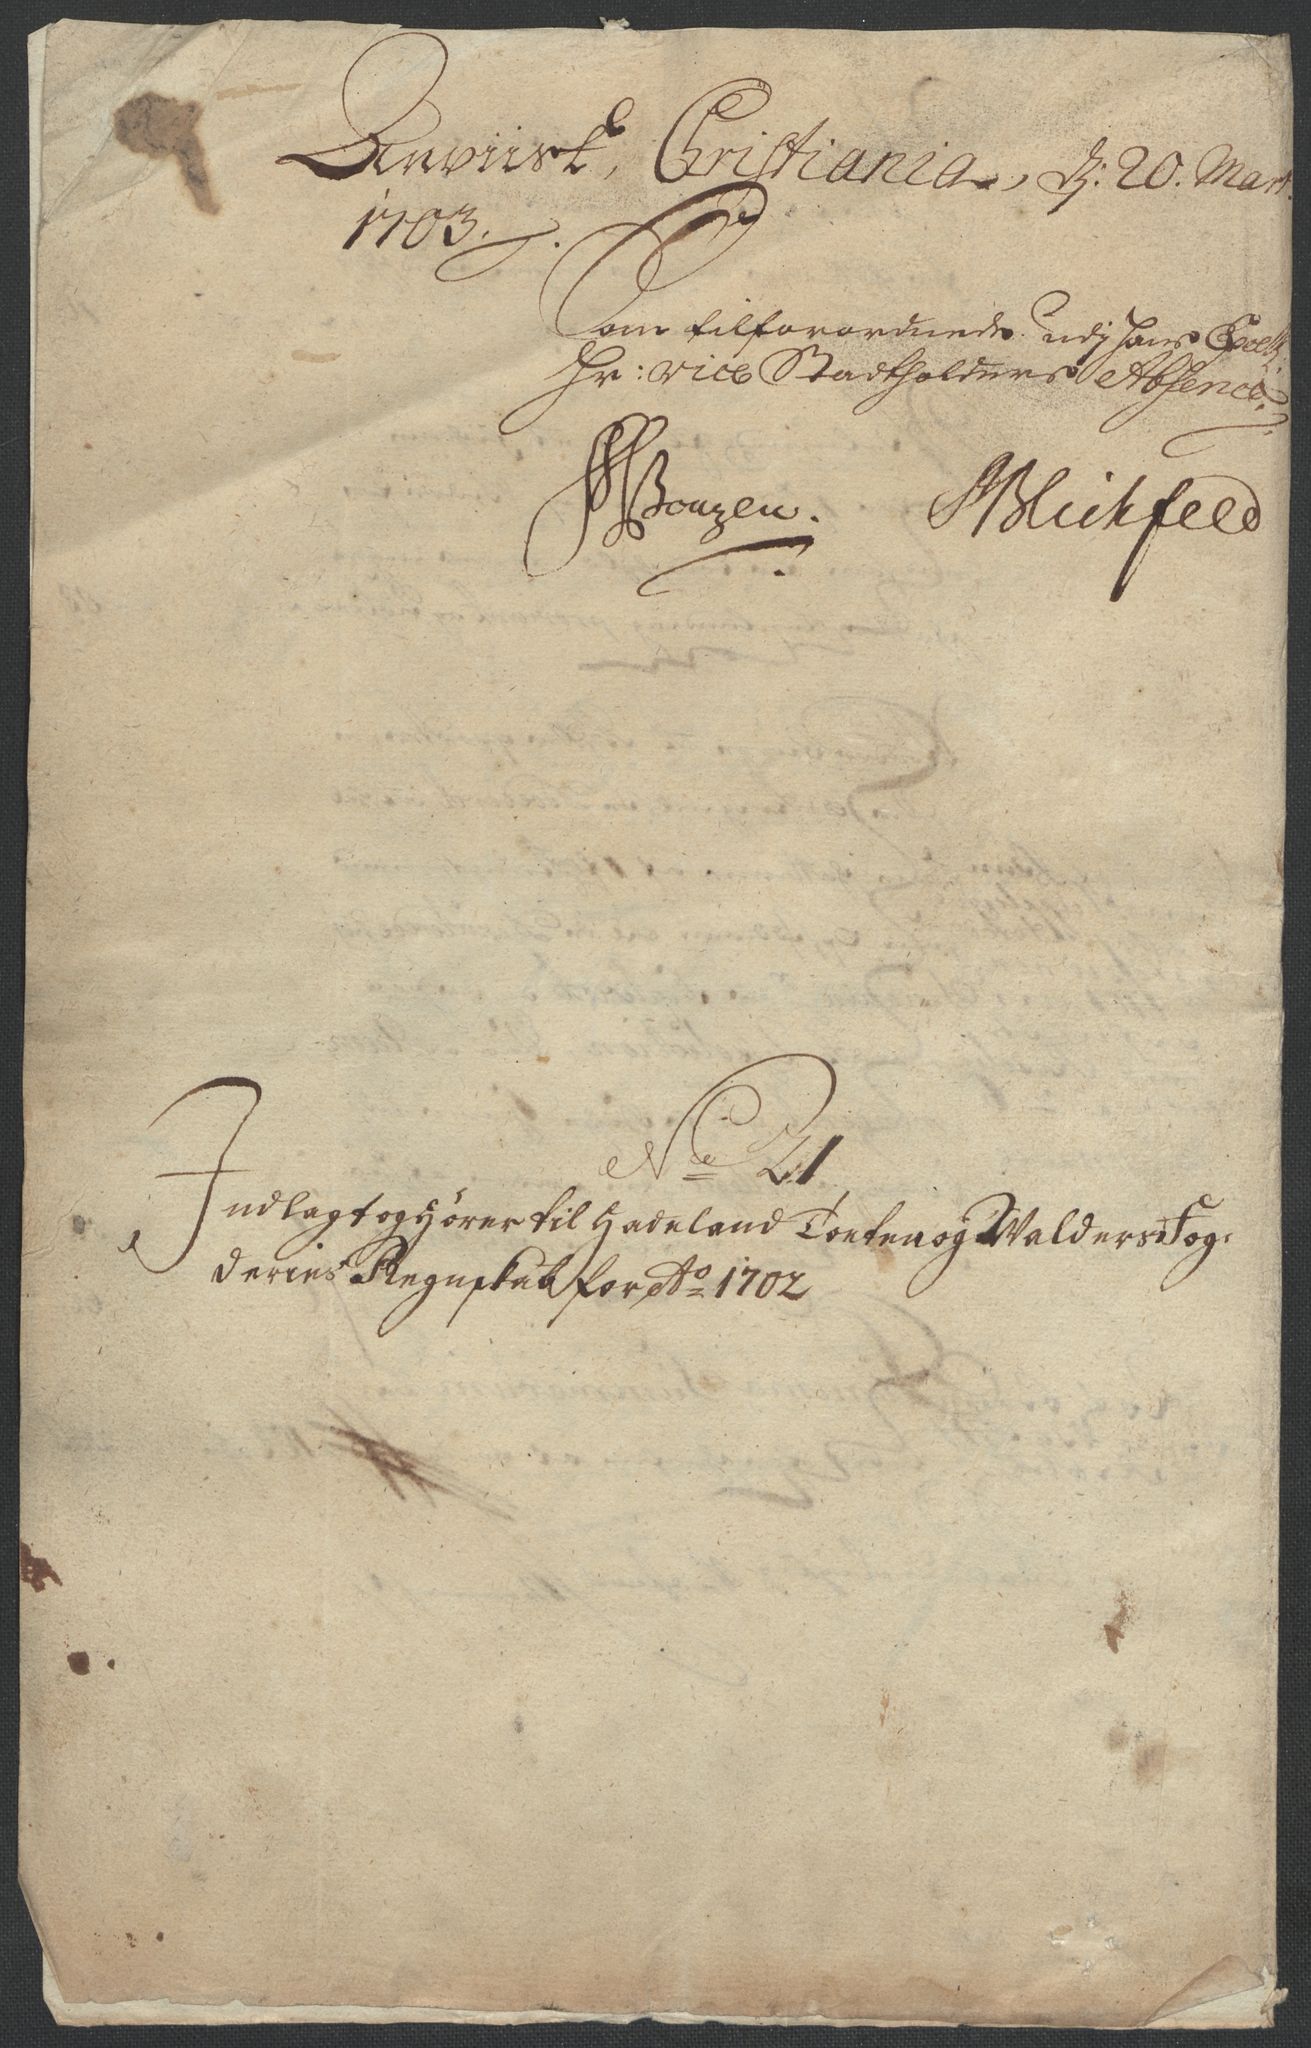 Anviist, Christiania, d: 20. Mart.
1703.
Som tilforordnede udj hans Excell:
Hr: Vice Stadtholders Absence.
Blichfeld
No 21
Indlagt og Hører til Hadeland Totten og Walders Fog-
deries Regnskab for Ao 1702